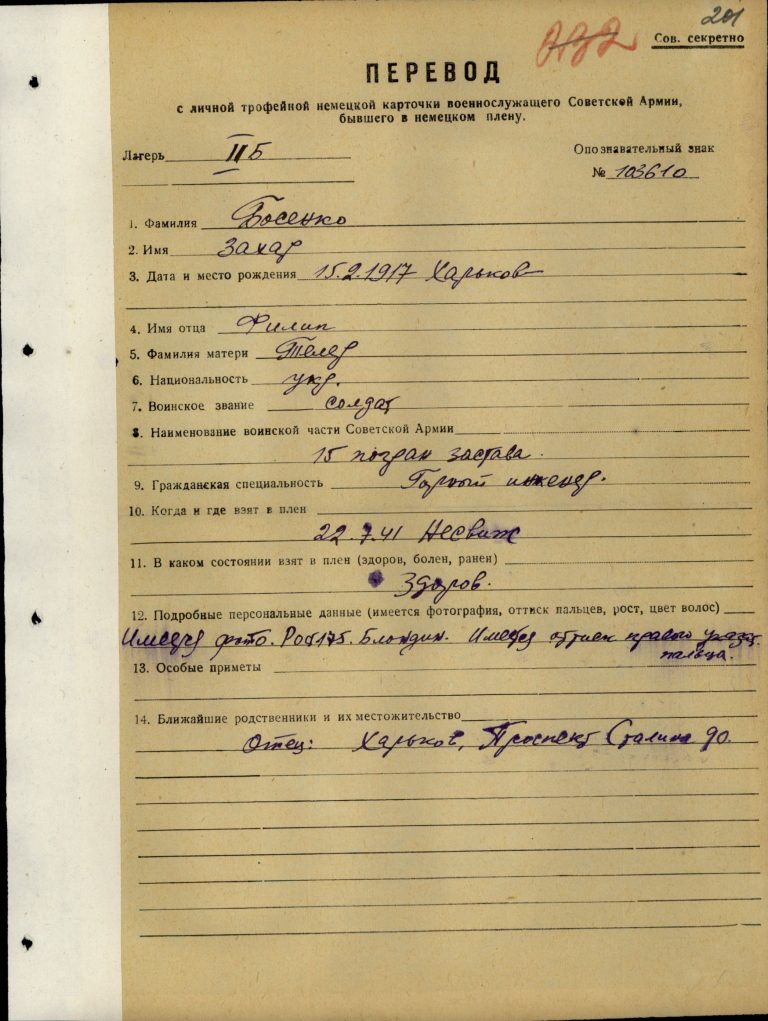 201
232
Сов. секретно
ПЕРЕВОД
с личной трофейной немецкой карточки военнослужащего Советской Армии,
бывшего в немецком плену.
Лагерь IIБ
Опознавательный знак
№ 103610
1. Фамилия Босенко
2. Имя Захар
3. Дата и место рождения 15.2.1917 Харьков
4. Имя отца Филип
5. Фамилия матери Телед
6. Национальность укр.
7. Воинское звание солдат
8. Наименование воинской части Советской Армии
15 погран застава.
9. Гражданская специальность Горный инженер.
10. Когда и где взят в плен
22.7.41 Несвиж
11. В каком состоянии взят в плен (здоров, болен, ранен)
Здоров.
12. Подробные персональные данные (имеется фотография, оттиск пальцев, рост, цвет волос)
Имеется фото. Рост 175. Блондин. Имеется оттиск правого указ.
пальца.
13. Особые приметы
14. Ближайшие родственники и их местожительство
Отец: Харьков, Проспект Сталина 90.